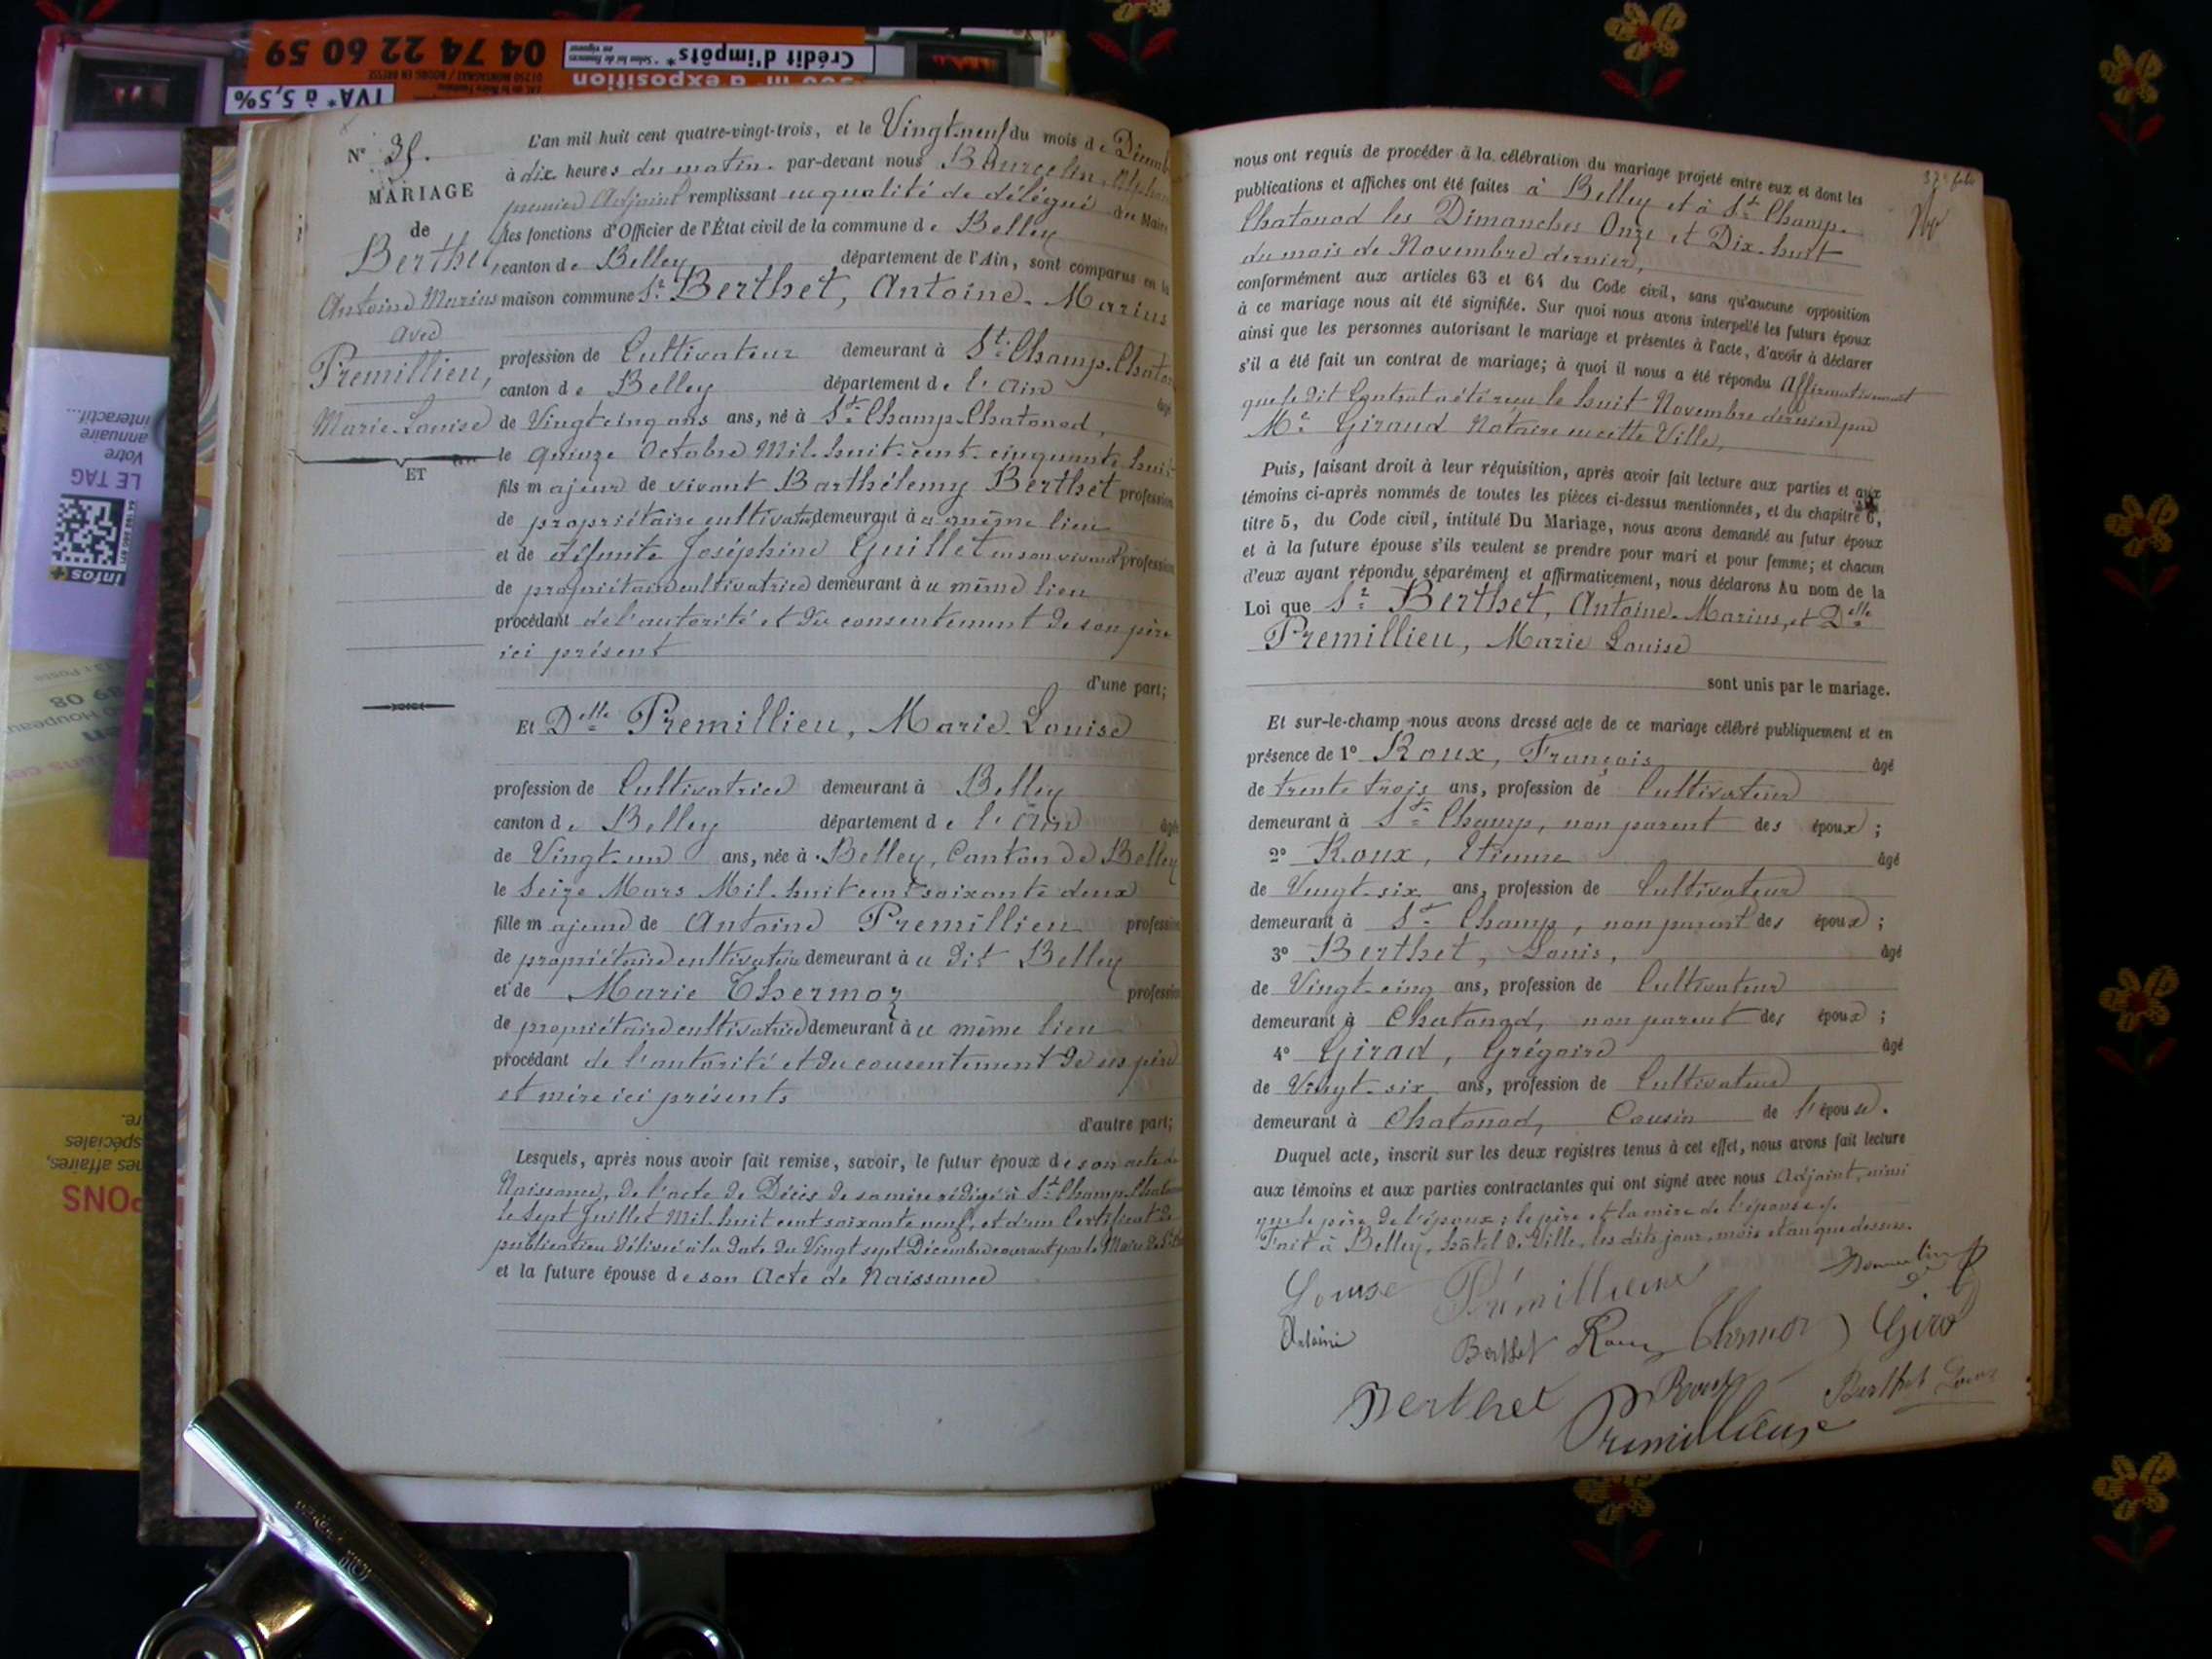 04 74 22 60 59
Crédit d'impôts*
* Selon loi de finances
en vigueur
m² d'exposition
TVA* à 5,5%
interactif...
annuaire
Votre
LE TAG
infos+
spéciales
nes affaires,
PONS
N° 35.
MARIAGE
de
Berthet,
Antoine Marius
avec
Premillieu,
Marie-Louise
ET
L'an mil huit cent quatre-vingt-trois, et le Vingt-neuf du mois de Décemb
à dix heures du matin. par-devant nous
premier Adjoint remplissant en qualité de délégué du Maire
les fonctions d'Officier de l'État civil de la commune de Belley
canton de Belley département de l'Ain, sont comparus en la
maison commune Sr. Berthet, Antoine-Marius
profession de Cultivateur demeurant à St. Champ-Chaton
canton de Belley département de l'Ain âgé
de Vingt cinq ans ans, né à St. Champ-Chatonod,
le quinze Octobre Mil-huit-cent-cinquante-huit
fils majeur de vivant Barthélemy Berthet profession
de propriétaire cultivateur demeurant à au même lieu
et de défunte Joséphine Guillet en son vivant profession
de propriétaire cultivatrice demeurant à u même lieu
procédant de l'autorité et du consentement de son père
ici présent
d'une part;
Et Delle Premillieu, Marie-Louise
profession de Cultivatrice demeurant à Belley
canton de Belley département de l'Ain âgé
de Vingt-un ans, née à Belley, Canton de Belley
le Seize Mars Mil-huit cent soixante deux
fille majeure de Antoine Premillieu profession
de propriétaire cultivateur demeurant à u dit Belley
et de Marie Thermoz profession
de propriétaire cultivatrice demeurant à u même lieu
procédant de l'autorité et du consentement de ses père
et mère ici présents
d'autre part;
Lesquels, après nous avoir fait remise, savoir, le futur époux de son acte de
Naissance, de l'acte de Décès de sa mère rédigé à St. Champ-Chaton
le Sept Juillet Mil-huit cent soixante neuf, et d'un Certificat de
publication délivré à la date du Vingt sept Décembre courant par le Maire de St
et la future épouse de son Acte de Naissance
37e folo
nous ont requis de procéder à la célébration du mariage projeté entre eux et dont les
publications et affiches ont été faites à Belley et à St. Champ-
Chatonod les Dimanches Onze et Dix-huit
du mois de Novembre dernier,
conformément aux articles 63 et 64 du Code civil, sans qu'aucune opposition
à ce mariage nous ait été signifiée. Sur quoi nous avons interpellé les futurs époux
ainsi que les personnes autorisant le mariage et présentes à l'acte, d'avoir à déclarer
s'il a été fait un contrat de mariage; à quoi il nous a été répondu Affirmativement
que le dit Contrat a été reçu le huit Novembre dernier par
Me. Giraud Notaire en cette Ville,
Puis, faisant droit à leur réquisition, après avoir fait lecture aux parties et aux
témoins ci-après nommés de toutes les pièces ci-dessus mentionnées, et du chapitre 6,
titre 5, du Code civil, intitulé Du Mariage, nous avons demandé au futur époux
et à la future épouse s'ils veulent se prendre pour mari et pour femme; et chacun
d'eux ayant répondu séparément et affirmativement, nous déclarons Au nom de la
Loi que Sr. Berthet, Antoine-Marius, et Delle
Premillieu, Marie Louise
sont unis par le mariage.
Et sur-le-champ nous avons dressé acte de ce mariage célébré publiquement et en
présence de 1° Roux, François âgé
de trente trois ans, profession de Cultivateur
demeurant à St. Champ, non parent des époux;
2° Roux, Etienne âgé
de Vingt-six ans, profession de Cultivateur
demeurant à St. Champ, non parent des époux;
3° Berthet, Louis, âgé
de Vingt-cinq ans, profession de Cultivateur
demeurant à Chatonod, non parent des époux;
4° Girod, Grégoire âgé
de Vingt-six ans, profession de Cultivateur
demeurant à Chatonod, Cousin de l'épouse.
Duquel acte, inscrit sur les deux registres tenus à cet effet, nous avons fait lecture
aux témoins et aux parties contractantes qui ont signé avec nous Adjoint, ainsi
que le père de l'époux; le père et la mère de l'épouse.
Fait à Belley, hôtel de Ville, les dits jour, mois et an que dessus.
Louise Prémillieux
Antoine Berthet Roux Thermoz Girod
Berthet Roux Berthet Louis
Premillieux